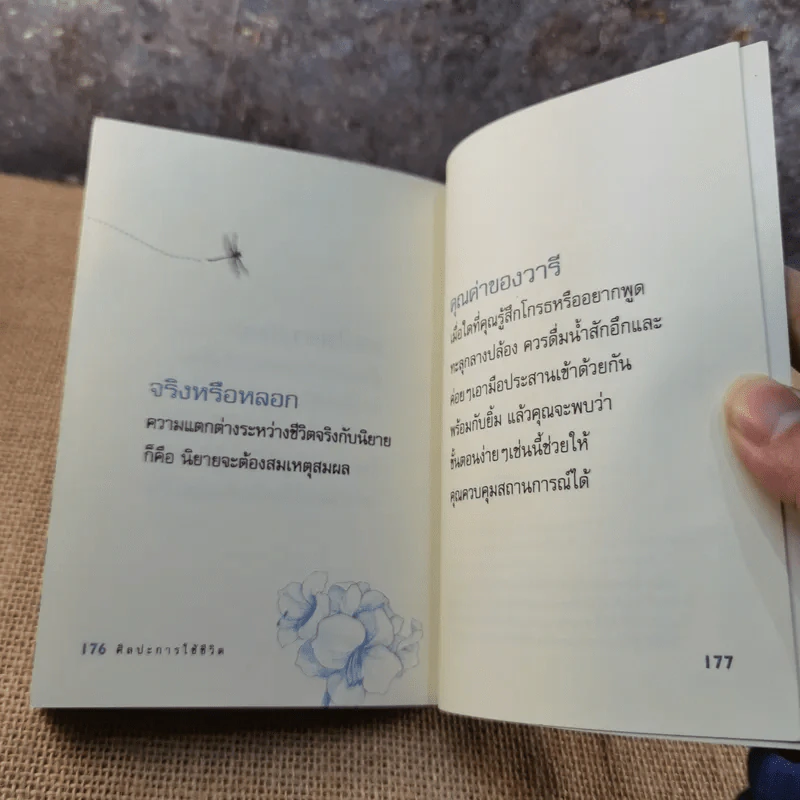 จริงหรือหลอก
ความแตกต่างระหว่างชีวิตจริงกับนิยาย
ก็คือ นิยายจะต้องสมเหตุสมผล
176 ศิลปะการใช้ชีวิต
คุณค่าของวารี
เมื่อใดที่คุณรู้สึกโกรธหรืออยากพูด
ทะลุกลางปล้อง ควรดื่มน้ำสักอึกและ
ค่อยๆเอามือประสานเข้าด้วยกัน
พร้อมกับยิ้ม แล้วคุณจะพบว่า
ขั้นตอนง่ายๆเช่นนี้ช่วยให้
คุณควบคุมสถานการณ์ได้
177